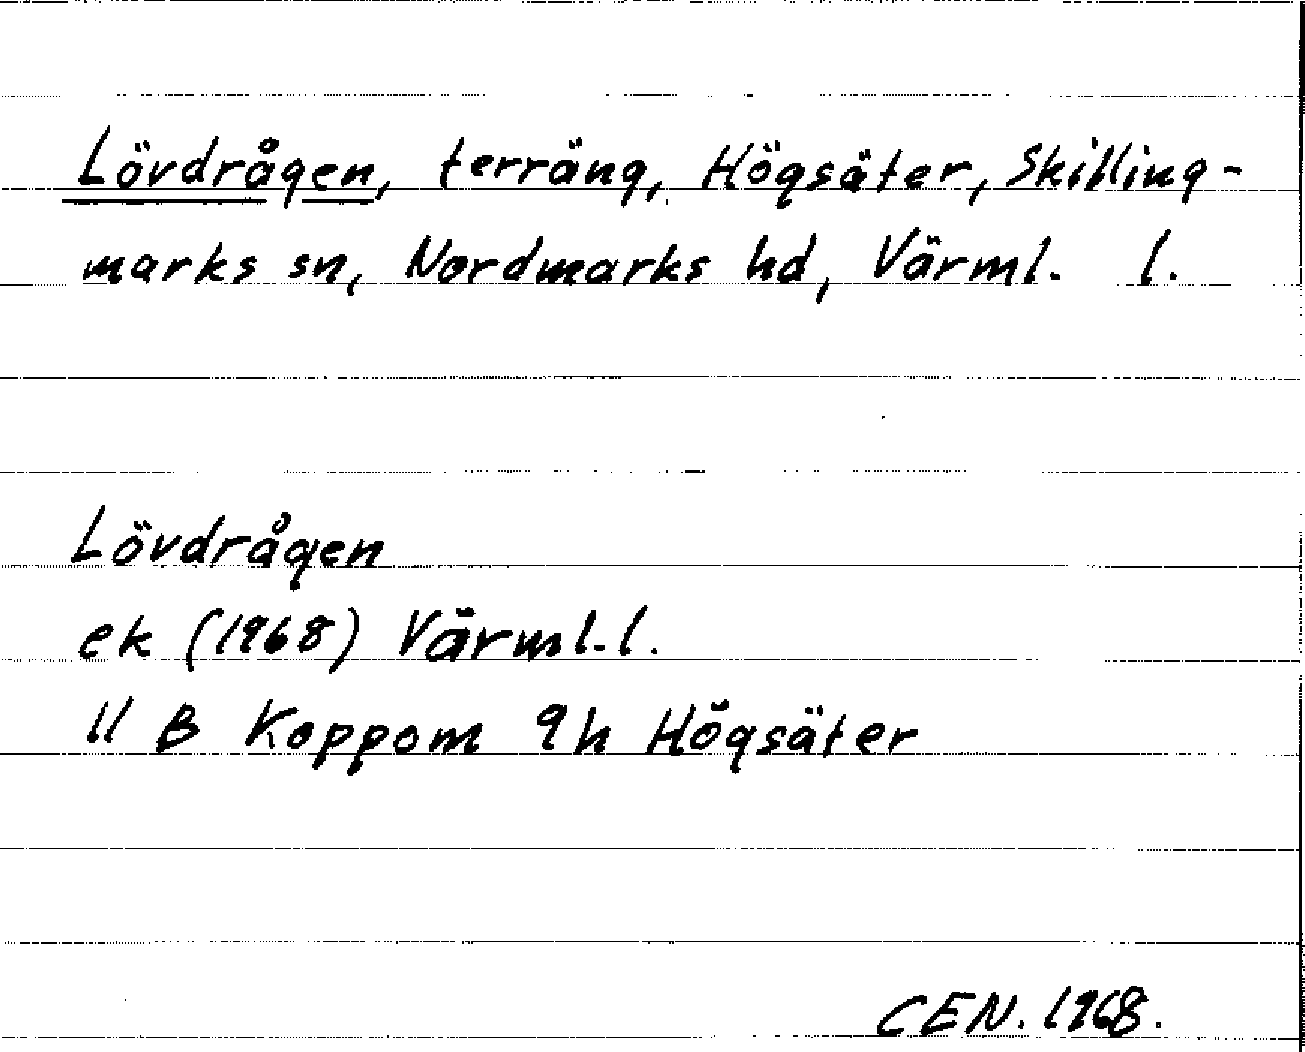 Lövdrågen, terräng, Högsäter, Skilling-
marks sn, Nordmarks hd, Värml. l.
Lövdrågen
ek (1968) Värml. l.
11 B Koppom 9h Högsäter
CEN. 1968.